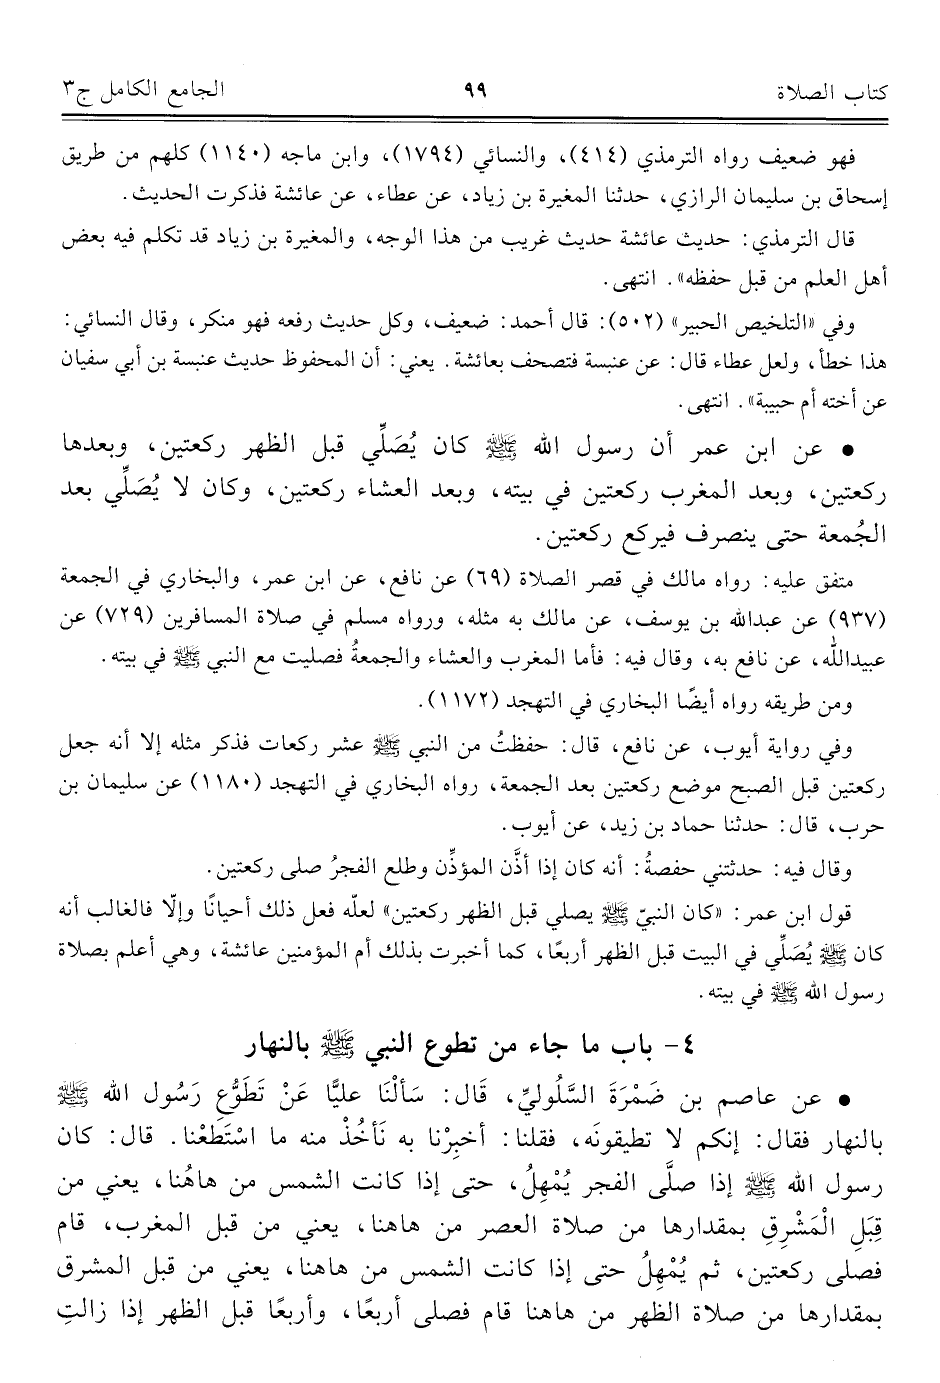 كتاب الصلاة ٩٩ الجامع الكامل ج٣
فهو ضعيف رواه الترمذي (٤١٤)، والنسائي (١٧٩٤)، وابن ماجه (١١٤٠) كلهم من طريق
إسحاق بن سليمان الرازي، حدثنا المغيرة بن زياد، عن عطاء، عن عائشة فذكرت الحديث.
قال الترمذي: حديث عائشة حديث غريب من هذا الوجه، والمغيرة بن زياد قد تكلم فيه بعض
أهل العلم من قبل حفظه». انتهى.
وفي «التلخيص الحبير» (٥٠٢): قال أحمد: ضعيف، وكل حديث رفعه فهو منكر، وقال النسائي:
هذا خطأ، ولعل عطاء قال: عن عنبسة فتصحف بعائشة. يعني: أن المحفوظ حديث عنبسة بن أبي سفيان
عن أخته أم حبيبة». انتهى.
• عن ابن عمر أن رسول الله ﷺ كان يُصَلِّي قبل الظهر ركعتين، وبعدها
ركعتين، وبعد المغرب ركعتين في بيته، وبعد العشاء ركعتين، وكان لا يُصَلِّي بعد
الجُمعة حتى ينصرف فيركع ركعتين.
متفق عليه: رواه مالك في قصر الصلاة (٦٩) عن نافع، عن ابن عمر، والبخاري في الجمعة
(٩٣٧) عن عبدالله بن يوسف، عن مالك به مثله، ورواه مسلم في صلاة المسافرين (٧٢٩) عن
عبيدالله، عن نافع به، وقال فيه: فأما المغرب والعشاء والجمعةُ فصليت مع النبي ﷺ في بيته.
ومن طريقه رواه أيضًا البخاري في التهجد (١١٧٢).
وفي رواية أيوب، عن نافع، قال: حفظتُ من النبي ﷺ عشر ركعات فذكر مثله إلا أنه جعل
ركعتين قبل الصبح موضع ركعتين بعد الجمعة، رواه البخاري في التهجد (١١٨٠) عن سليمان بن
حرب، قال: حدثنا حماد بن زيد، عن أيوب.
وقال فيه: حدثتني حفصةُ: أنه كان إذا أذَّن المؤذِّن وطلع الفجرُ صلى ركعتين.
قول ابن عمر: «كان النبيّ ﷺ يصلي قبل الظهر ركعتين» لعلّه فعل ذلك أحيانًا وإلّا فالغالب أنه
كان ﷺ يُصَلِّي في البيت قبل الظهر أربعًا، كما أخبرت بذلك أم المؤمنين عائشة، وهي أعلم بصلاة
رسول الله ﷺ في بيته.
٤- باب ما جاء من تطوع النبي ﷺ بالنهار
• عن عاصم بن ضَمْرَةَ السَّلُوليِّ، قَال: سَألْنَا عليًّا عَنْ تَطَوُّعِ رَسُول الله ﷺ
بالنهار فقال: إنكم لا تطيقونَه، فقلنا: أخبِرْنا به نَأخُذْ منه ما اسْتَطَعْنا. قال: كان
رسول الله ﷺ إذا صلَّى الفجر يُمْهِلُ، حتى إذا كانت الشمس من هاهُنا، يعني من
قِبَلِ الْمَشْرِقِ بمقدارها من صلاة العصر من هاهنا، يعني من قبل المغرب، قام
فصلى ركعتين، ثم يُمْهِلُ حتى إذا كانت الشمس من هاهنا، يعني من قبل المشرق
بمقدارها من صلاة الظهر من هاهنا قام فصلى أربعًا، وأربعًا قبل الظهر إذا زالتِ